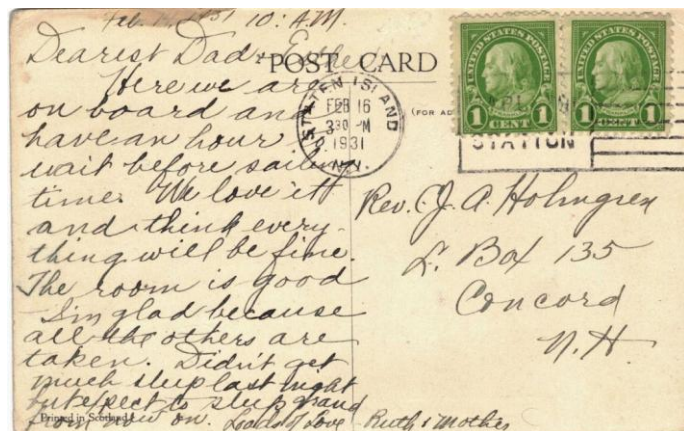 Feb. 1931 10: A.M.
Dearest Dad &
Here we are
on board and
have an hour
wait before sailing
time. We love it
and think every-
thing will be fine.
The room is good
I'm glad because
all the others are
taken. Didn't get
much sleep last night
but expect to sleep grand
from now on. Loads of Love
Ruth & Mother
Printed in Scotland
POST CARD
(FOR AD
STATEN ISLAND
FEB 16
3 30 PM
1931
N.Y.
STATION
UNITED STATES POSTAGE
1 CENT 1
UNITED STATES POSTAGE
1 CENT 1
Rev. J. A. Holmgren
L. Box 135
Concord
N.H.